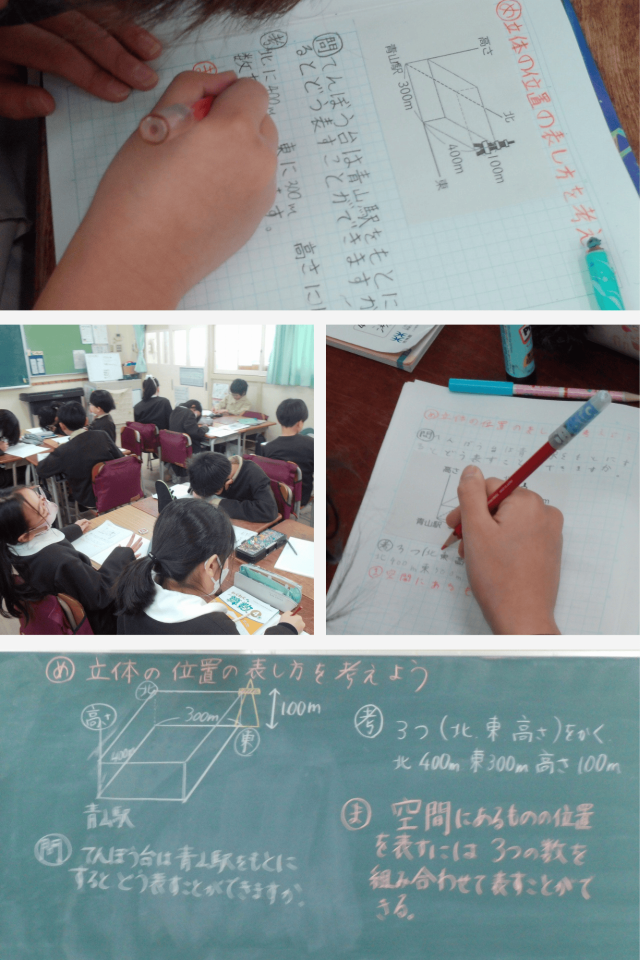 め 立体の位置の表し方を考え
高さ
北
青山駅
300m
400m
100m
東
問 てんぼう台は青山駅をもとに
るとどう表すことができますか
考 北に400m 東に300m 高さに
数
す。
算数
め 立体の位置の表し方
高さ
青山駅
考 3つ(北
ま 空間にある
め 立体の位置の表し方を考えよう
北
高さ
300m
100m
400m
東
青山駅
問 てんぼう台は青山駅をもとに
するとどう表すことができますか。
考 3つ(北、東 高さ)をかく
北 400m 東300m 高さ 100m
ま 空間にあるものの位置
を表すには 3つの数を
組み合わせて表すことがで
きる。